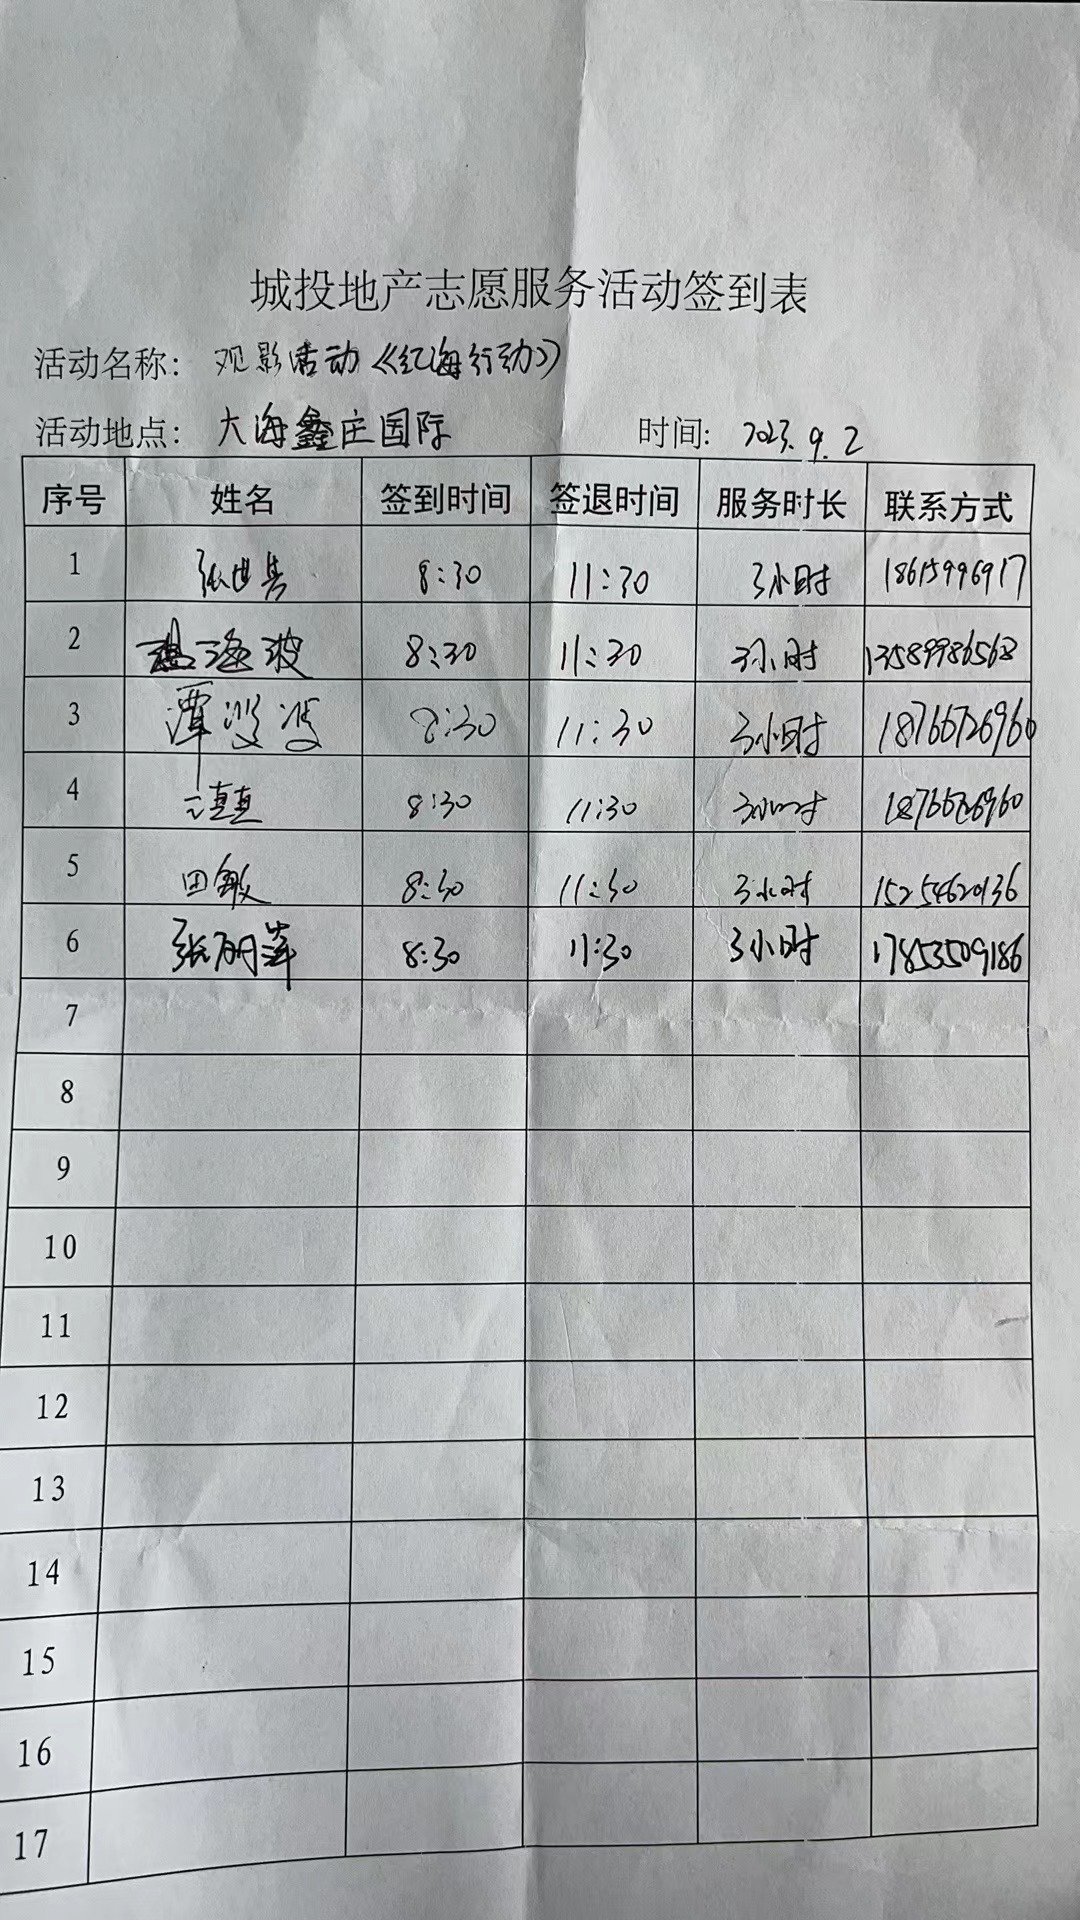 城投地产志愿服务活动签到表
活动名称: 观影活动《红海行动》
活动地点: 大海鑫庄国际 时间: 2023.9.2
序号 姓名 签到时间 签退时间 服务时长 联系方式
1 8:30 11:30 3小时 18615996917
2 海波 8:30 11:30 3小时 13589986568
3 谭 8:30 11:30 3小时 18766726960
4 8:30 11:30 3小时 18766726960
5 田敏 8:30 11:30 3小时 15254620136
6 张丽萍 8:30 11:30 3小时 17853509186
7
8
9
10
11
12
13
14
15
16
17